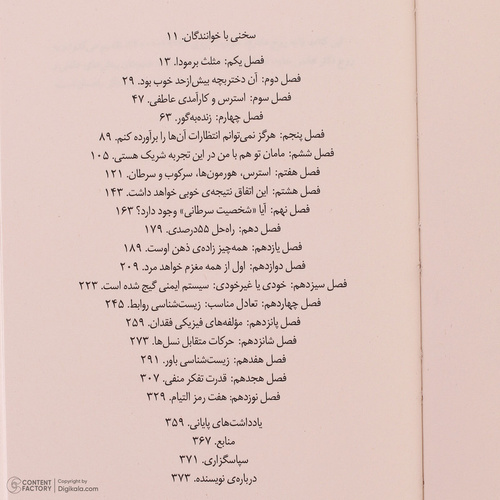 سخنی با خوانندگان. ۱۱
فصل یکم: مثلث برمودا. ۱۳
فصل دوم: آن دختربچه بیش‌ازحد خوب بود. ۲۹
فصل سوم: استرس و کارآمدی عاطفی. ۴۷
فصل چهارم: زنده‌به‌گور. ۶۳
فصل پنجم: هرگز نمی‌توانم انتظارات آن‌ها را برآورده کنم. ۸۹
فصل ششم: مامان تو هم با من در این تجربه شریک هستی. ۱۰۵
فصل هفتم: استرس، هورمون‌ها، سرکوب و سرطان. ۱۲۱
فصل هشتم: این اتفاق نتیجه‌ی خوبی خواهد داشت. ۱۴۳
فصل نهم: آیا «شخصیت سرطانی» وجود دارد؟ ۱۶۳
فصل دهم: راه‌حل ۵۵درصدی. ۱۷۹
فصل یازدهم: همه‌چیز زاده‌ی ذهن اوست. ۱۸۹
فصل دوازدهم: اول از همه مغزم خواهد مرد. ۲۰۹
فصل سیزدهم: خودی یا غیرخودی: سیستم ایمنی گیج شده است. ۲۲۳
فصل چهاردهم: تعادل مناسب: زیست‌شناسی روابط. ۲۴۵
فصل پانزدهم: مؤلفه‌های فیزیکی فقدان. ۲۵۹
فصل شانزدهم: حرکات متقابل نسل‌ها. ۲۷۳
فصل هفدهم: زیست‌شناسی باور. ۲۹۱
فصل هجدهم: قدرت تفکر منفی. ۳۰۷
فصل نوزدهم: هفت رمز التیام. ۳۲۹
یادداشت‌های پایانی. ۳۵۹
منابع. ۳۶۷
سپاسگزاری. ۳۷۱
درباره‌ی نویسنده. ۳۷۳
CONTENT FACTORY | Copyright by Digikala.com